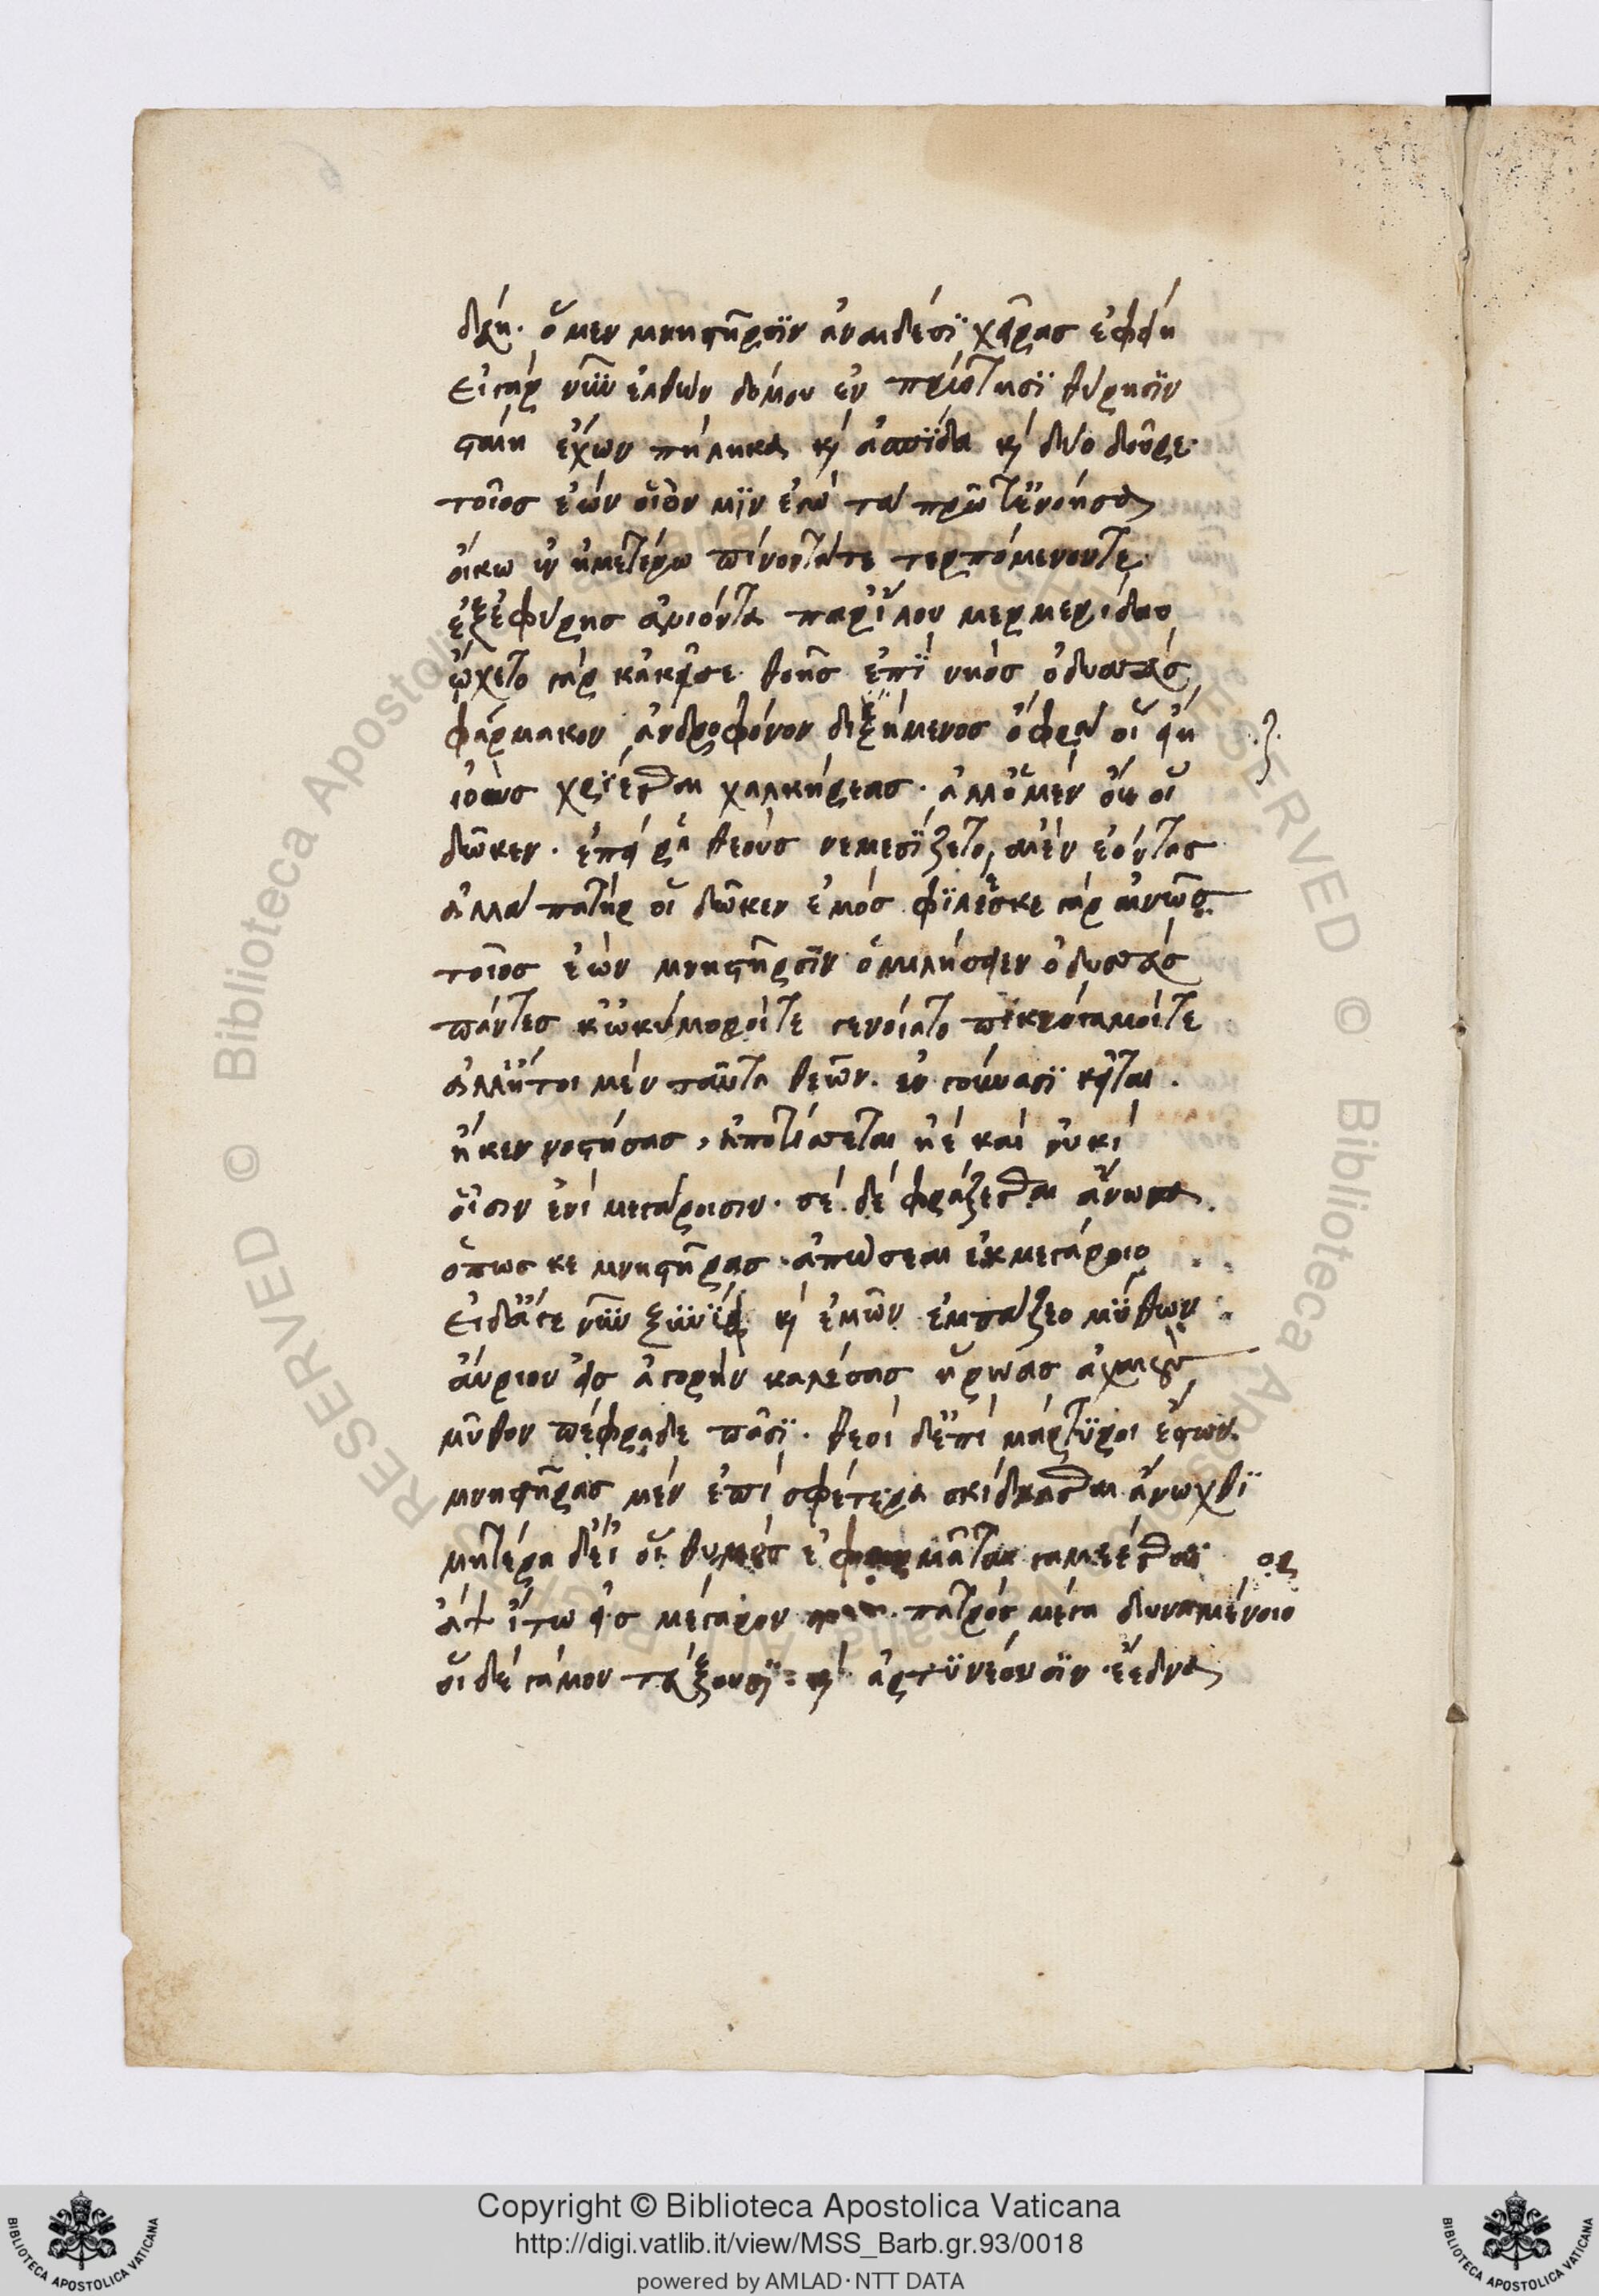 δεύη. ὅ μεν μνηστῆρσϊν ἀναιδέσϊ χεῖρας ἐφείη
εἰ γὰρ νῦν ἐλθὼν δόμου ἐν πρώτησϊ θύρησϊν
σταίη ἔχων πήληκα κὶ ἀσπίδα κὶ δύο δοῦρε·
τοῖος ἐὼν οἷόν μϊν ἐγὼ τὰ πρῶτ' ἐνόησα
οἴκω ἐν ἡμετέρω πίνοντά τε τερπόμενόν τε·
ἐξ ἐφύρης ἀνιόντα παρ' ἴλου μερμερίδαο
ὤχετο γὰρ κἀκεῖσε θοῆς ἐπὶ νηὸς ὀδυσσεύς
φάρμακον ἀνδροφόνον διζήμενος ὄφρά οἱ εἴη
ἰοὺς χρίεσθαι χαλκήρεας. ἀλλ' ὁ μὲν οὔ οἱ
δῶκεν. ἐπεί ῥα θεοὺς νεμεσίζετο αἰὲν ἐόντας
ἀλλὰ πατήρ οἱ δῶκεν ἐμός. φϊλέεσκε γὰρ αἰνῶς
τοῖος ἐὼν μνηστῆρσϊν ὁμιλήσειεν ὀδυσσεύς
πάντες κ' ὠκύμοροί τε γενοίατο πϊκρόγαμοί τε
ἀλλ' ἤτοι μὲν ταῦτα θεῶν. ἐν γούνασϊ κεῖται.
ἤ κεν νοστήσας, ἀποτίσεται ἠὲ καὶ οὐκὶ
οἷσιν ἐνὶ μεγάροισιν. σὲ δὲ φράζεσθαι ἄνωγα.
ὅππως κε μνηστῆρας ἀπώσεαι ἐκ μεγάροιο
εἰ δ' ἄγε νῦν ξυνΐει κὶ ἐμῶν ἐμπάζεο μύθων
αὔριον εἰς ἀγορὴν καλέσας ἥρωας ἀχαιοὺς
μῦθον πέφραδε πᾶσϊ. θεοὶ δ' ἐπὶ μάρτϋροι ἔστων.
μνηστῆρας μὲν ἐπὶ σφέτερα σκίδνασθαι ἄνωχθϊ
μητέρα δ' εἴ οἱ θυμὸς ἐφορμᾶται γαμέεσθαι ορ
ἂψ ἴτω εἰς μέγαρον πατρὸς μέγα δυναμένοιο
οἱ δὲ γάμον τεύξουσϊ κὶ ἀρτϋνέουσϊν ἔεδνα